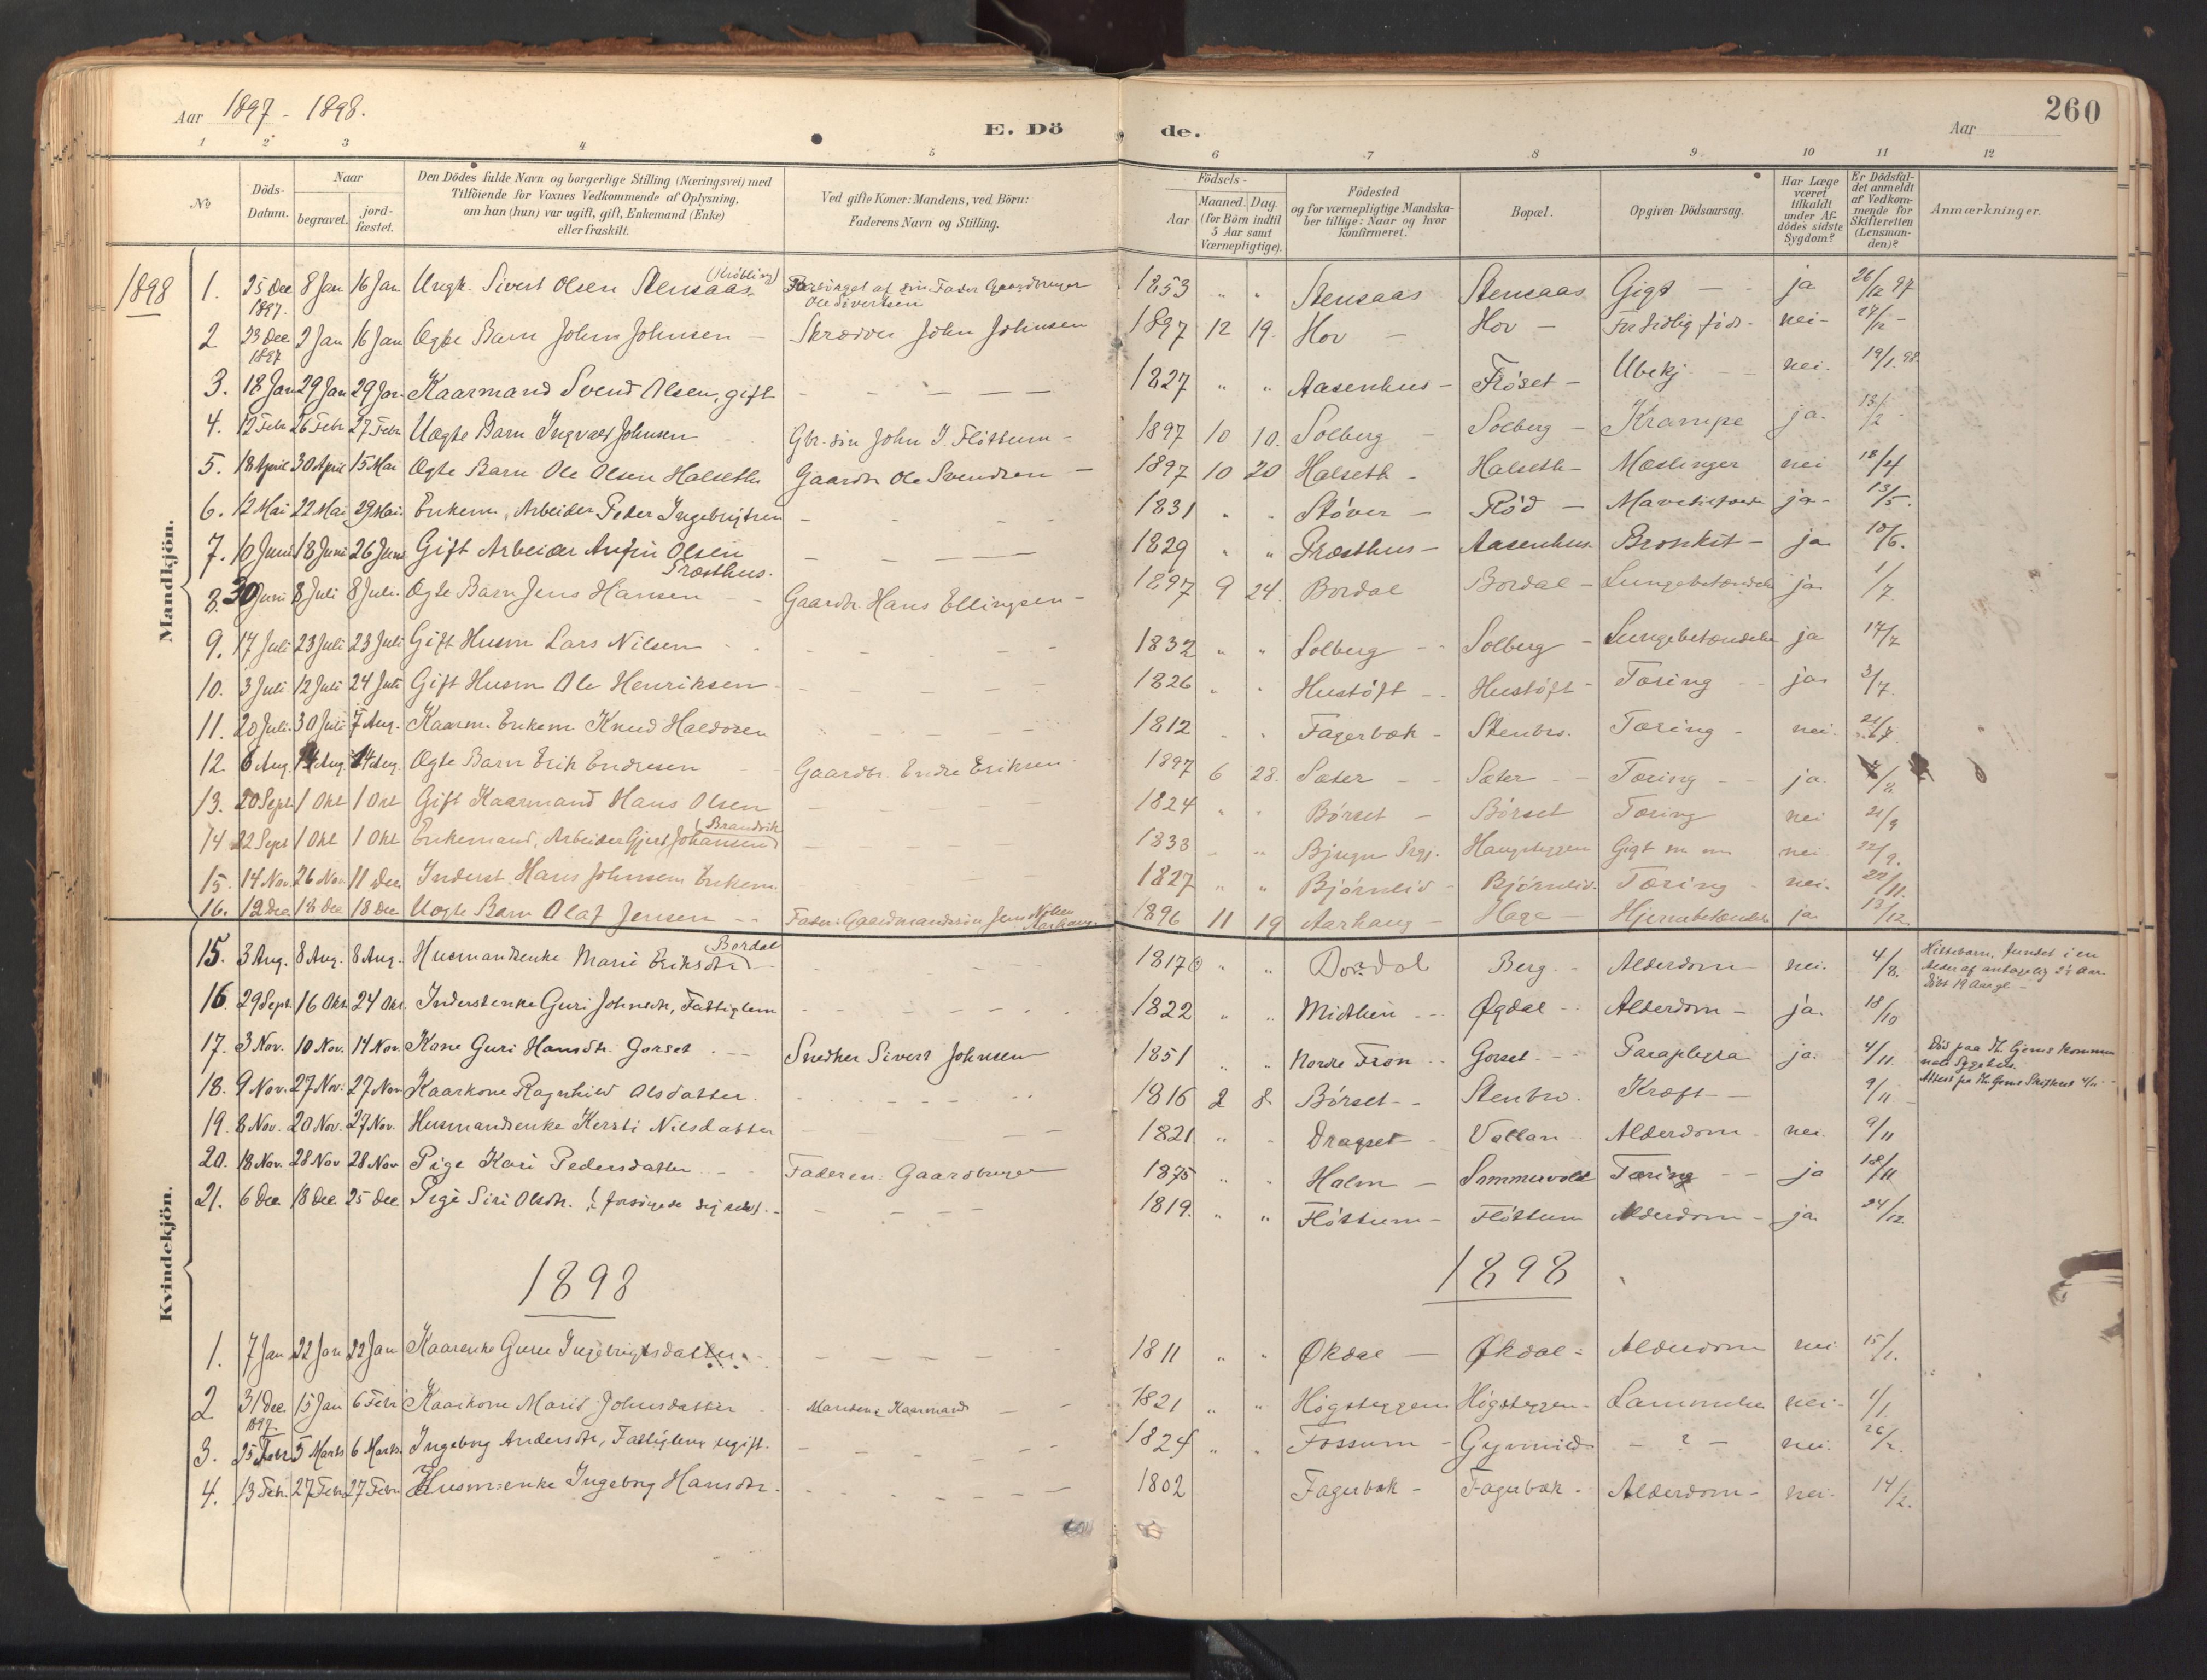 260
Aar 1897 - 1898.
E. Dö de.
Aar
1 2 3 4 5 6 7 8 9 10 11 12
No
Döds-Datum.
Naar
begravet. jord-fæstet.
Den Dödes fulde Navn og borgerlige Stilling (Næringsvei) med
Tilföiende for Voxnes Vedkommende af Oplysning,
om han (hun) var ugift, gift, Enkemand (Enke)
eller fraskilt.
Ved gifte Koner: Mandens, ved Börn:
Faderens Navn og Stilling.
Födsels-
Aar Maaned. Dag.
(for Börn indtil
5 Aar samt
Værnepligtige).
Födested
og for værnepligtige Mandska-
ber tillige: Naar og hvor
Konfirmeret.
Bopæl.
Opgiven Dödsaarsag.
Har Læge
været
tilkaldt
under Af-
dödes sidste
Sygdom?
Er Dödsfal-
det anmeldt
af Vedkom-
mende for
Skifteretten
(Lensman-
den)?
Anmærkninger.
Mandkjön.
1898
1. 25 Dec 1897. 8 Jan 16 Jan Ungk. Sivert Olsen Stensaas (Kröbling) Forsörget af sin Fader Gaardbruger Ole Sivertsen 1853 " " Stensaas Stensaas Gigt - ja 26/12 97
2 23 Dec 1897 2 Jan 16 Jan Ægte Barn John Johnsen - Skrædder John Johnsen 1897 12 19. Hov - Hov - For tidlig föd - nei -
3. 18 Jan 29 Jan 29 Jan. Kaarmand Svend Olsen, gift - 1827 " " Aasenhus - Flöset - Ubekj. nei. 19/1 98.
4. 12 Febr 26 Febr 27 Febr Uægte Barn Ingvald Johnsen Gbr. sön John J. Flöttum - 1897 10 10. Solberg - Solberg - Krampe ja. 13/2
5. 18 April 30 April 15 Mai Ægte Barn Ole Olsen Halseth Gaardbr Ole Svendsen - 1897 10 20 Halseth - Halseth - Mæslinger nei 18/4
6. 12 Mai 22 Mai 29 Mai. Enkem, Arbeider Peder Ingebrigtsen - 1831 " " Stöver - Röd - ja - 13/5.
7. 10 Juni 18 Juni 26 Juni Gift Arbeider Anfin Olsen Præsthus. - 1829 " " Præsthus - Aasenhus. Bronkit - ja 10/6.
8. 30 Juni 8 Juli 8 Juli. Ægte Barn Jens Hansen Gaardbr. Hans Ellingsen - 1897 9 24. Bordal Bordal - Lungebetændelse ja 1/7
9. 17 Juli 23 Juli 23 Juli Gift Husm Lars Nilsen - 1832 " " Solberg - Solberg - Lungebetændelse ja 17/7
10. 3 Juli 12 Juli 24 Juli Gift Husm Ole Henriksen - 1826 " " Hustöft - Hustöft - Tæring - ja 3/7.
11. 20 Juli. 30 Juli 7 Aug. Kaarm. Enkem Knud Haldosen 1812 " " Fagerbæk - Stenbro. Tæring - nei. 21/7.
12. 6 Aug. 14 Aug. 14 Aug. Ægte Barn Erik Endresen Gaardbr. Endre Eriksen. 1897 6 28. Sæter - Sæter - Tæring - ja.
13. 20 Sept 1 Okt 1 Okt Gift Kaarmand Hans Olsen - 1824 " " Börset - Börset Tæring nei 21/9
14 22 Sept 1 Okt 1 Okt Enkemand, Arbeider Gjert Johansen (Brandvik) - 1833 - " Bjugn Prgj. Haugseggen Gigt m m nei 22/9.
15. 14 Nov. 26 Nov 11 Dec Inderst Hans Johnsen Enkem 1827 " " Björnlid - Björnlid. Tæring - nei.
16. 12 Dec. 18 Dec 18 Dec Uægte Barn Olaf Jensen - Fader: Gaardmandssön Jens Aarhaug 1896 11 19 Aarhaug - Hage - Hjernebetændelse ja. 13/12.
Kvindekjön.
15. 3 Aug. 8 Aug. 8 Aug. Husmandsenke Marie Eriksdtr (Bordal) 1817 " " Bordal Berg. - Alderdom - nei. 4/8. Hittebarn, fundet i en Alder af antagelig 2½ Aar. Döbt 19 Aar gl. -
16. 29 Sept. 16 Okt. 24 Okt. Inderstenke Guri Johnsdtr, Fattiglem - 1822 " " Midthun - Øgdal - Alderdom - ja. 18/10
17. 3 Nov. 10 Nov. 14 Nov. Kone Guri Hansdtr. Gorset. - Snedker Sivert Johnsen 1851 " " Nordre Fron - Gorset - Paraplegia ja. 4/11. Död paa
18. 9 Nov. 27 Nov. 27 Nov Kaarkone Ragnhild Olsdatter. - 1816 2 8. Börset - Stenbro. Kræft - 9/11.
19. 8 Nov. 20 Nov. 27 Nov. Husmandsenke Kersti Nilsdatter - 1821 " " Dragset - Vollan - Alderdom - nei. 9/11
20. 18 Nov. 28 Nov 28 Nov Pige Kari Pedersdatter - Faderen: Gaardbruger 1875 " " Halm - Sommervold Tæring - ja 18/11
21. 6 Dec 18 Dec 25 Dec Pige Siri Olsdtr. (forsörgede sig selv). - 1819. " " Flöttum - Flöttum Alderdom - ja. 24/12.
1898 1898
1. 7 Jan 22 Jan 22 Jan Kaarenke Guru Ingebrigtsdatter. - 1811 " " Økdal - Økdal - Alderdom nei 15/1.
2 31 Dec 1897 15 Jan 6 Febr Kaarkone Marit Johnsdatter Manden: Kaarmand - 1821 " " Högseggen Högseggen - Lammelse nei - 1/1.
3. 25 Febr 5 Marts 6 Marts. Ingeborg Andersdtr, Fattiglem, ugift. - 1824 " " Fossum - Gynnild - ? - nei. 26/2.
4. 13 Febr 27 Febr 27 Febr Husm:enke Ingeborg Hansdtr. - 1802 Fagerbæk - Fagerbæk - Alderdom - nei. 14/2.